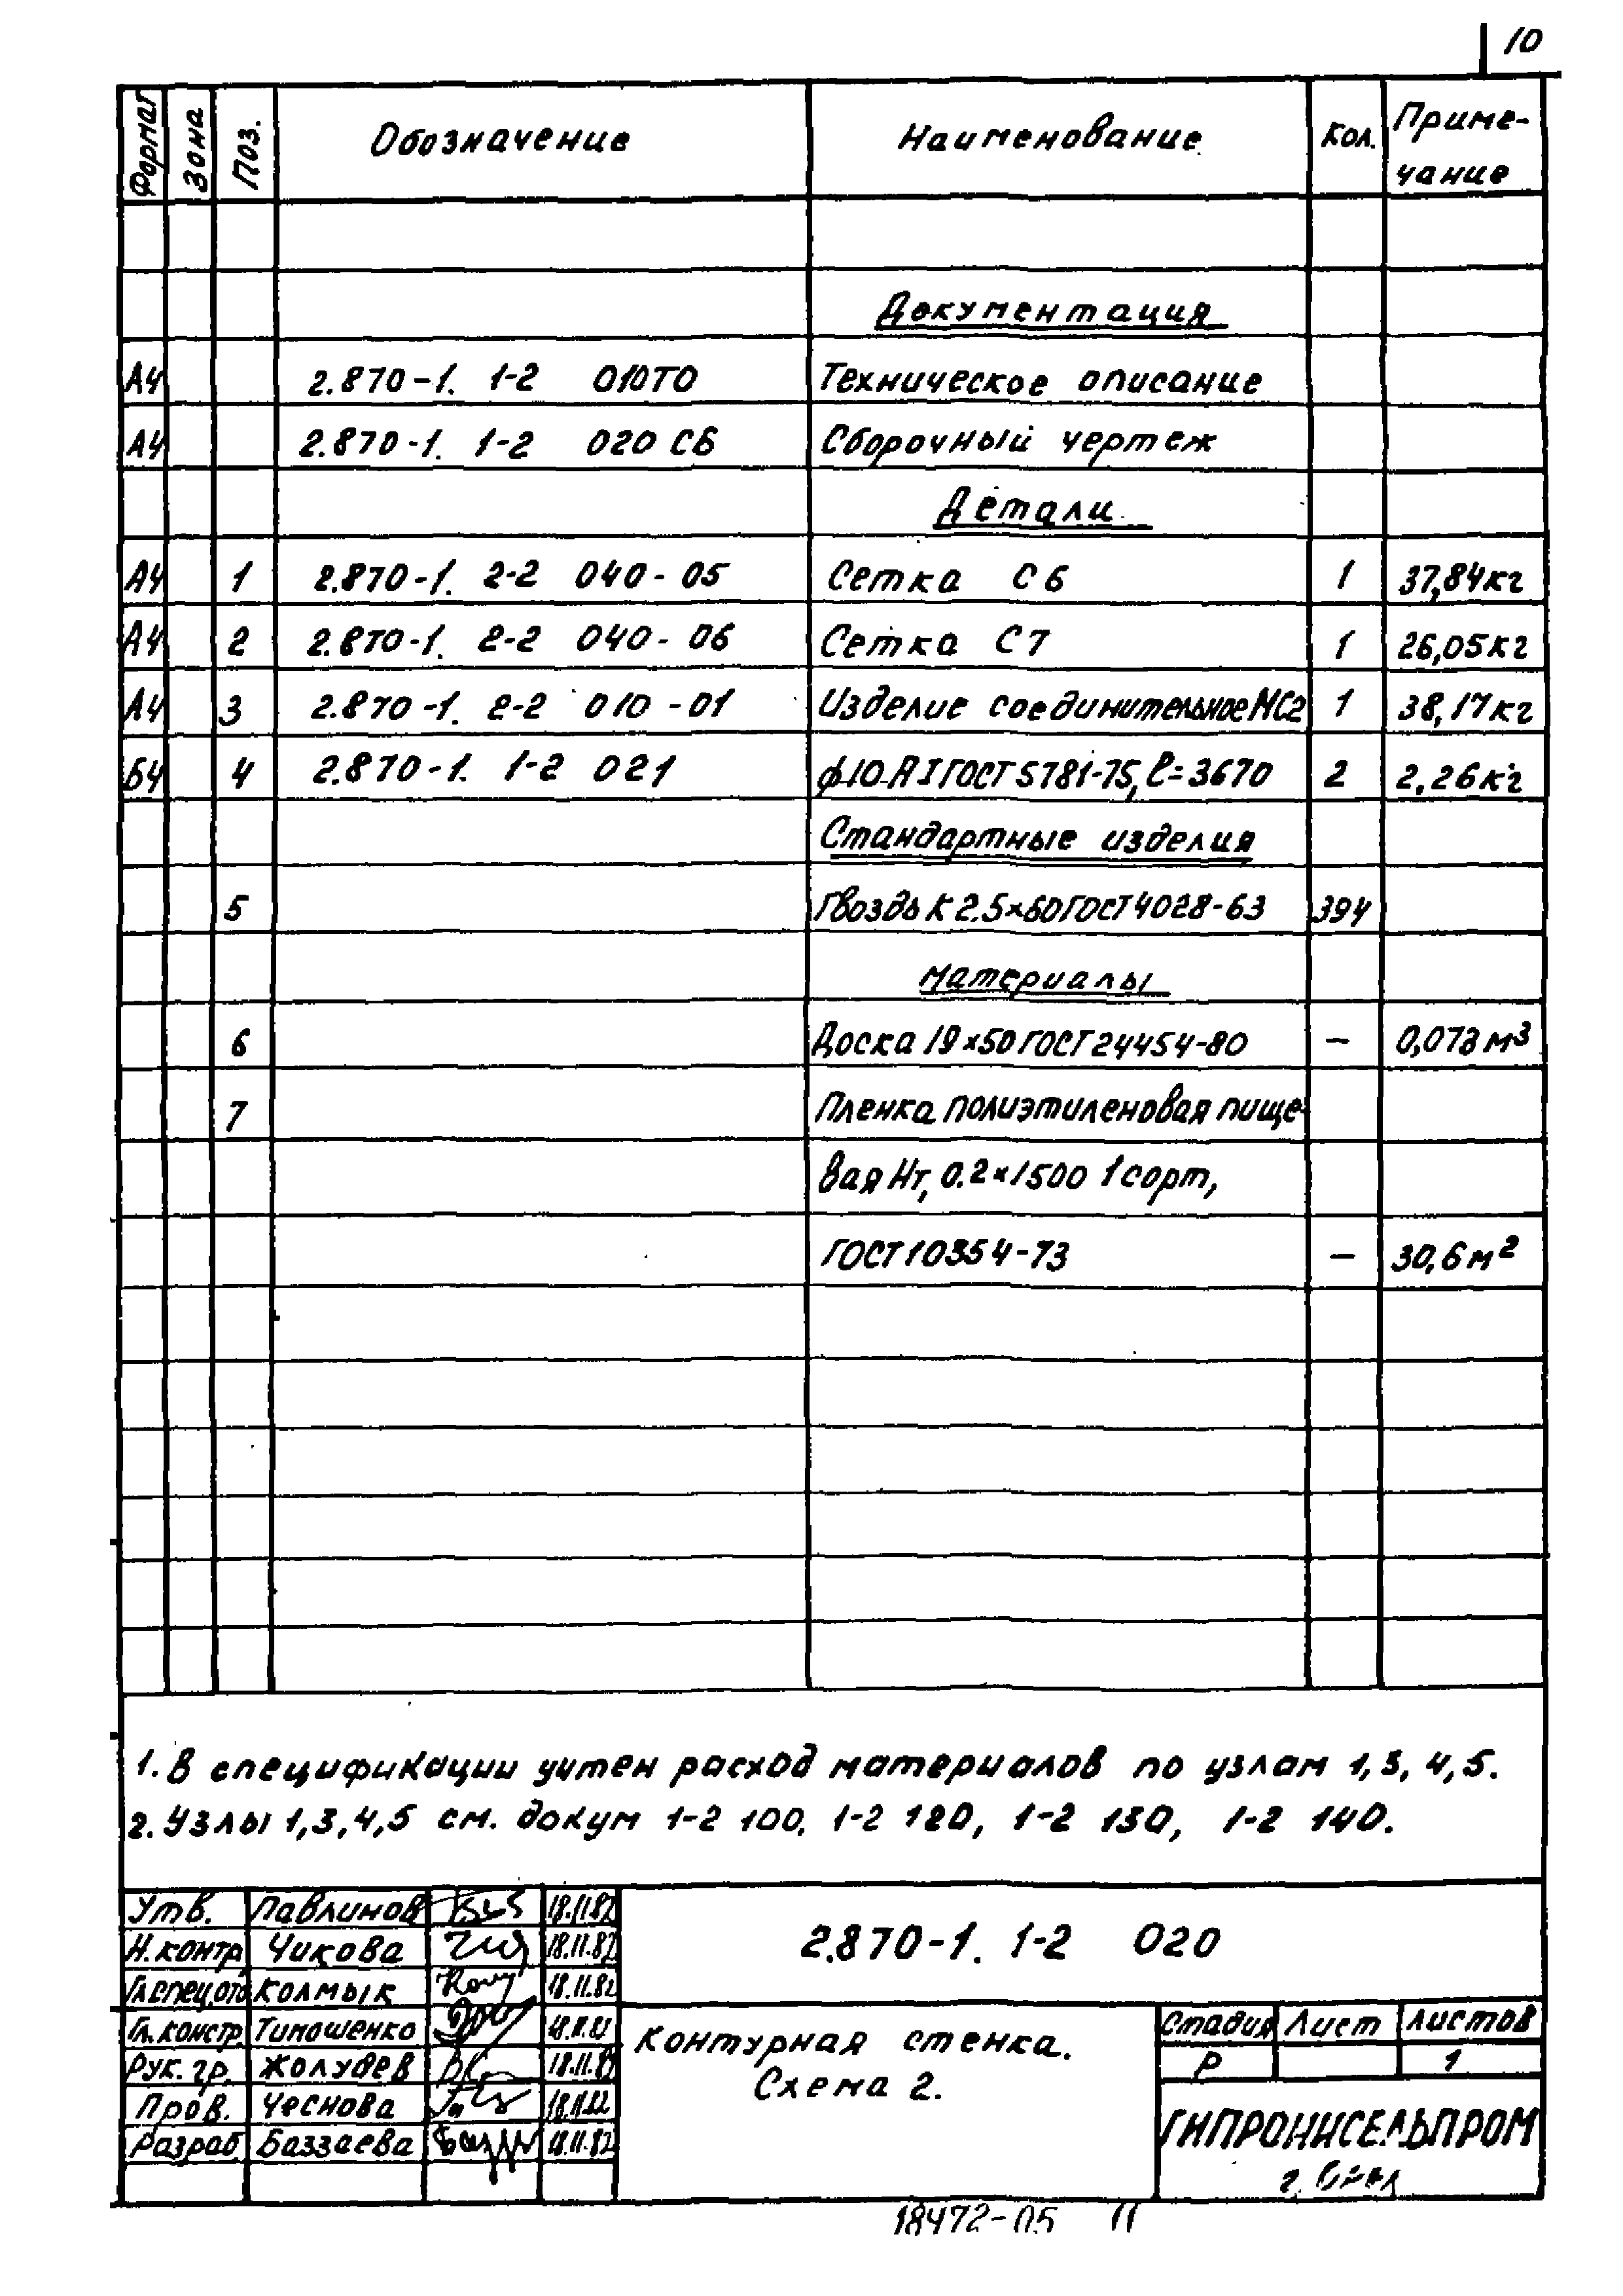 10
Формат Зона Поз. Обозначение Наименование Кол. Приме-
чание
Документация
А4 2.870-1. 1-2 010ТО Техническое описание
А4 2.870-1. 1-2 020 СБ Сборочный чертеж
Детали
А4 1 2.870-1. 2-2 040-05 Сетка С6 1 37,84кг
А4 2 2.870-1. 2-2 040-06 Сетка С7 1 26,05кг
А4 3 2.870-1. 2-2 010-01 Изделие соединительное МС2 1 38,17кг
Б4 4 2.870-1. 1-2 021 ϕ10 АI ГОСТ 5781-75, ℓ=3670 2 2,26кг
Стандартные изделия
5 Гвоздь К 2.5×60 ГОСТ 4028-63 394
Материалы
6 Доска 19×50 ГОСТ 24454-80 — 0,073 м³
7 Пленка полиэтиленовая пище-
вая Нт, 0.2×1500 1 сорт,
ГОСТ 10354-73 — 30,6 м²
1. В спецификации учтен расход материалов по узлам 1,3,4,5.
2. Узлы 1,3,4,5 см. докум 1-2 100, 1-2 120, 1-2 130, 1-2 140.
Утв. Павлинов 18.11.82
Н.контр. Чикова 18.11.82
Гл.спец.отд Колмык 18.11.82
Гл.констр. Тимошенко 18.11.82
Рук.гр. Жолудев 18.11.82
Пров. Чеснова 18.11.82
Разраб Баззаева 18.11.82
2.870-1. 1-2 020
Контурная стенка.
Схема 2.
Стадия Лист Листов
Р 1
ГИПРОНИСЕЛЬПРОМ
г. Орел
18472-05 11